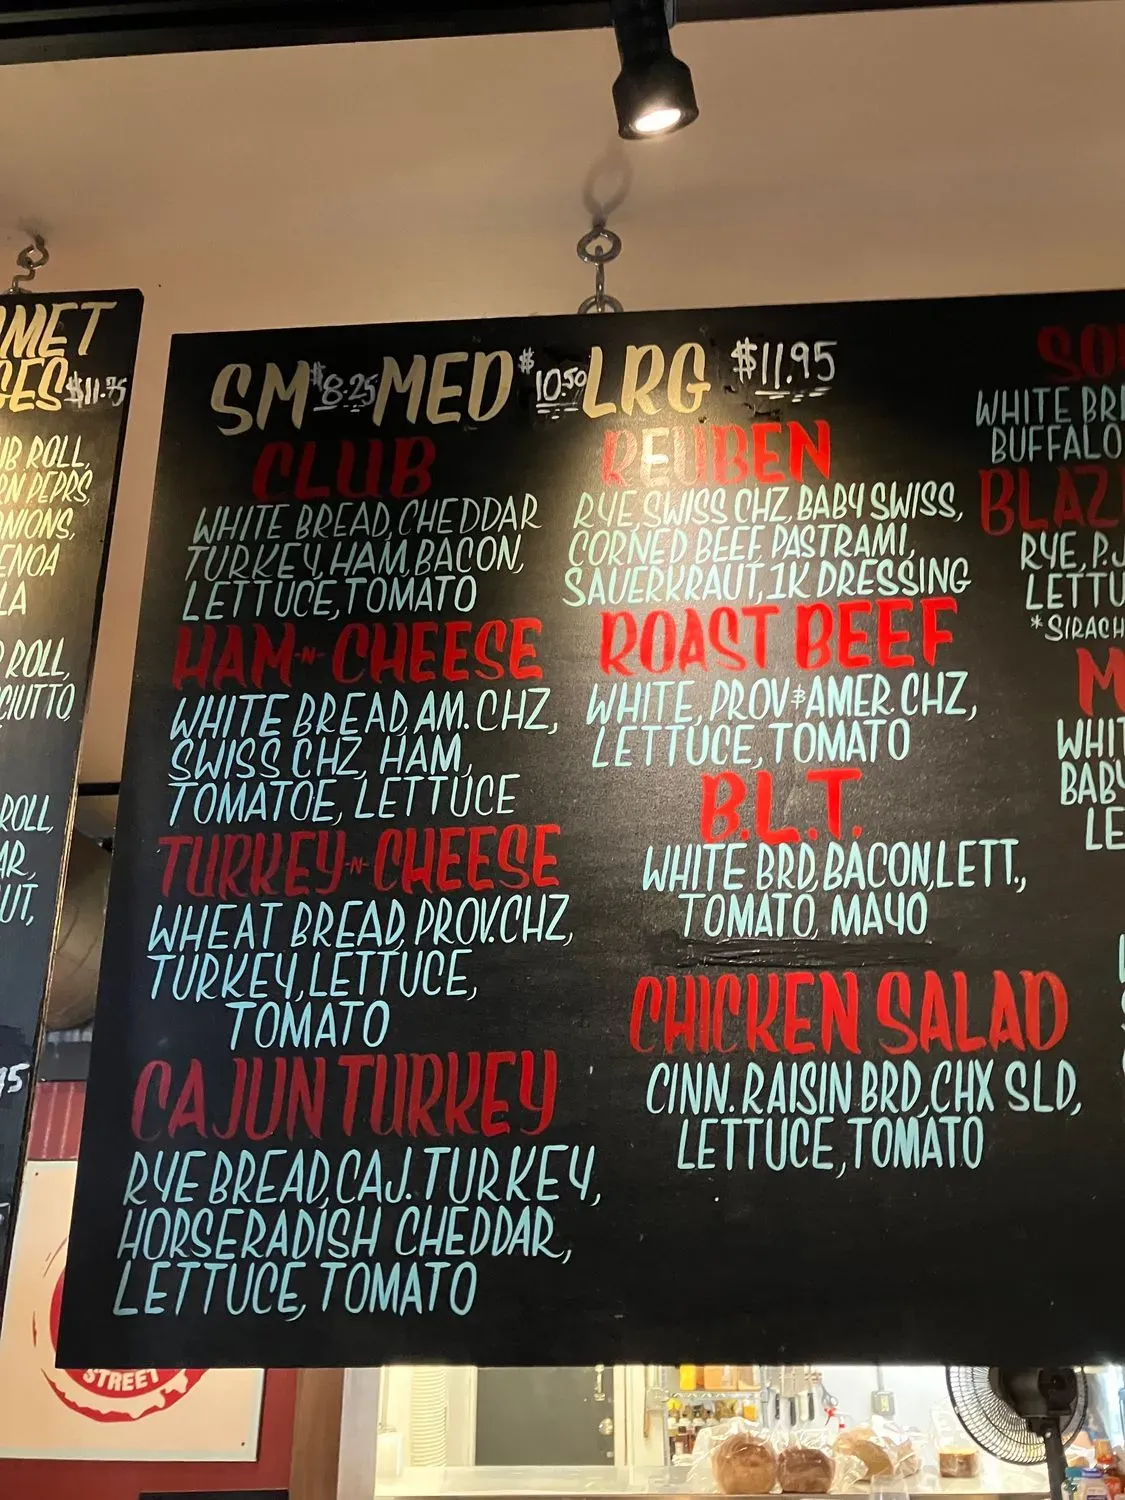 $11.75
UB ROLL,
RN PEPRS,
ROLL,
ROLL,
SM $8.25 MED $10.50 LRG $11.95
CLUB
WHITE BREAD, CHEDDAR
TURKEY, HAM, BACON,
LETTUCE, TOMATO
HAM-N-CHEESE
WHITE BREAD, AM. CHZ,
SWISS CHZ, HAM,
TOMATOE, LETTUCE
TURKEY-N-CHEESE
WHEAT BREAD, PROV. CHZ,
TURKEY, LETTUCE,
TOMATO
CAJUN TURKEY
RYE BREAD, CAJ. TURKEY,
HORSERADISH CHEDDAR,
LETTUCE, TOMATO
REUBEN
RYE, SWISS CHZ, BABY SWISS,
CORNED BEEF, PASTRAMI,
SAUERKRAUT, 1K DRESSING
ROAST BEEF
WHITE, PROV & AMER. CHZ,
LETTUCE, TOMATO
B.L.T.
WHITE BRD, BACON, LETT.,
TOMATO, MAYO
CHICKEN SALAD
CINN. RAISIN BRD, CHX SLD,
LETTUCE, TOMATO
WHITE BR
BUFFALO
BLAZ
RYE, P.J
LETTU
*SIRACH
WHIT
BABY
LE
STREET